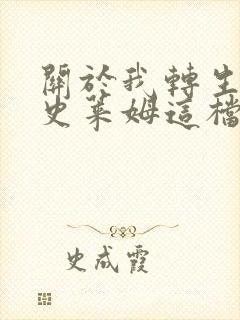 關於我轉生
史萊姆這檔
史成霞